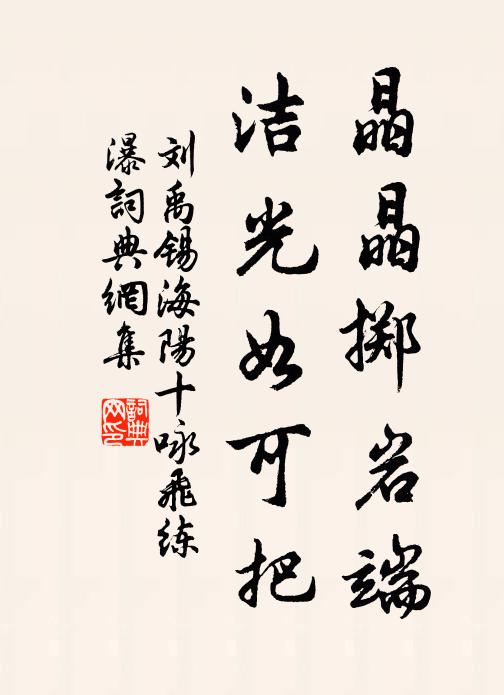 晶晶掷岩端
洁光如可把
刘禹锡海陽十咏飛练
瀑詞典網集
詞典
网印